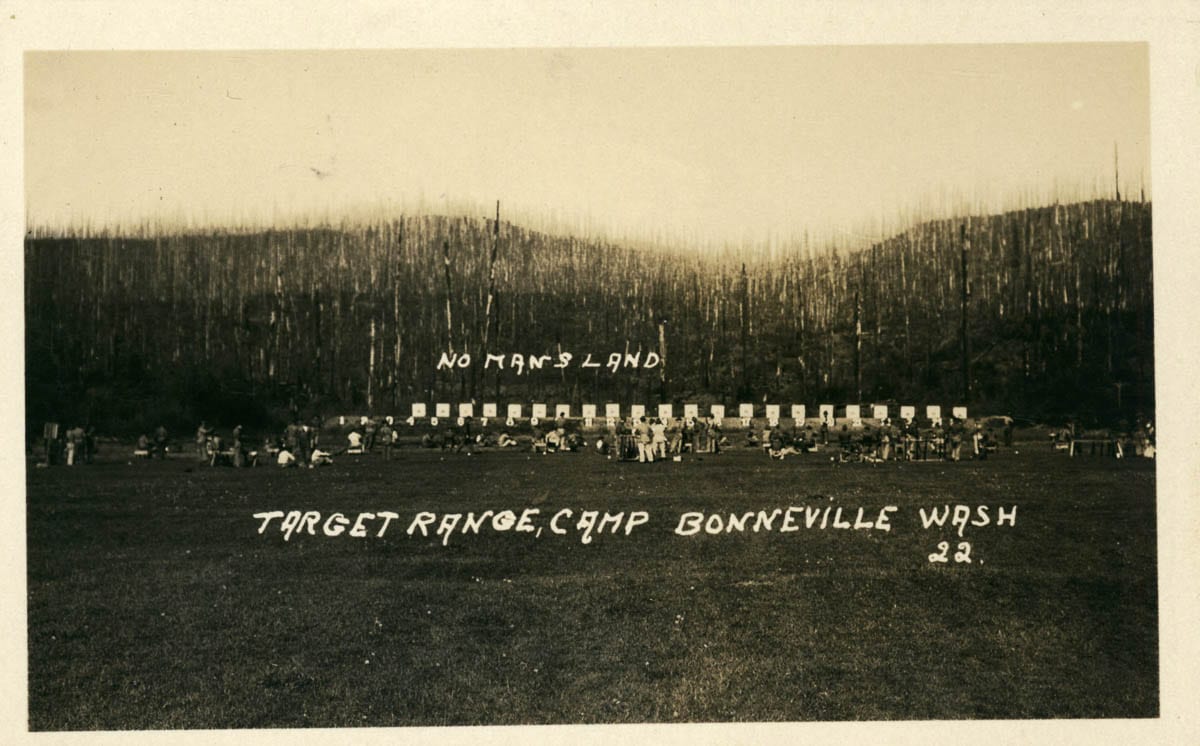 NO MAN'S LAND
4 5 6 7 8
TARGET RANGE, CAMP BONNEVILLE WASH
22.